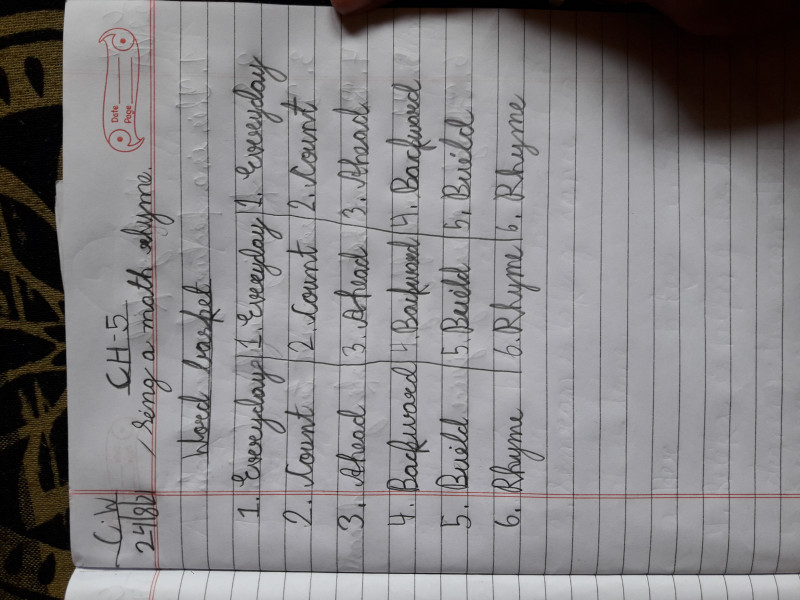 Date
Page
C.W
CH-5
24/8/2
Sing a math rhyme.
Word basket
1. Everyday 1. Everyday 1. Everyday
2. Count 2. Count 2. Count
3. Ahead 3. Ahead 3. Ahead
4. Backward 4. Backward 4. Backward
5. Build 5. Build 5. Build
6. Rhyme 6. Rhyme 6. Rhyme